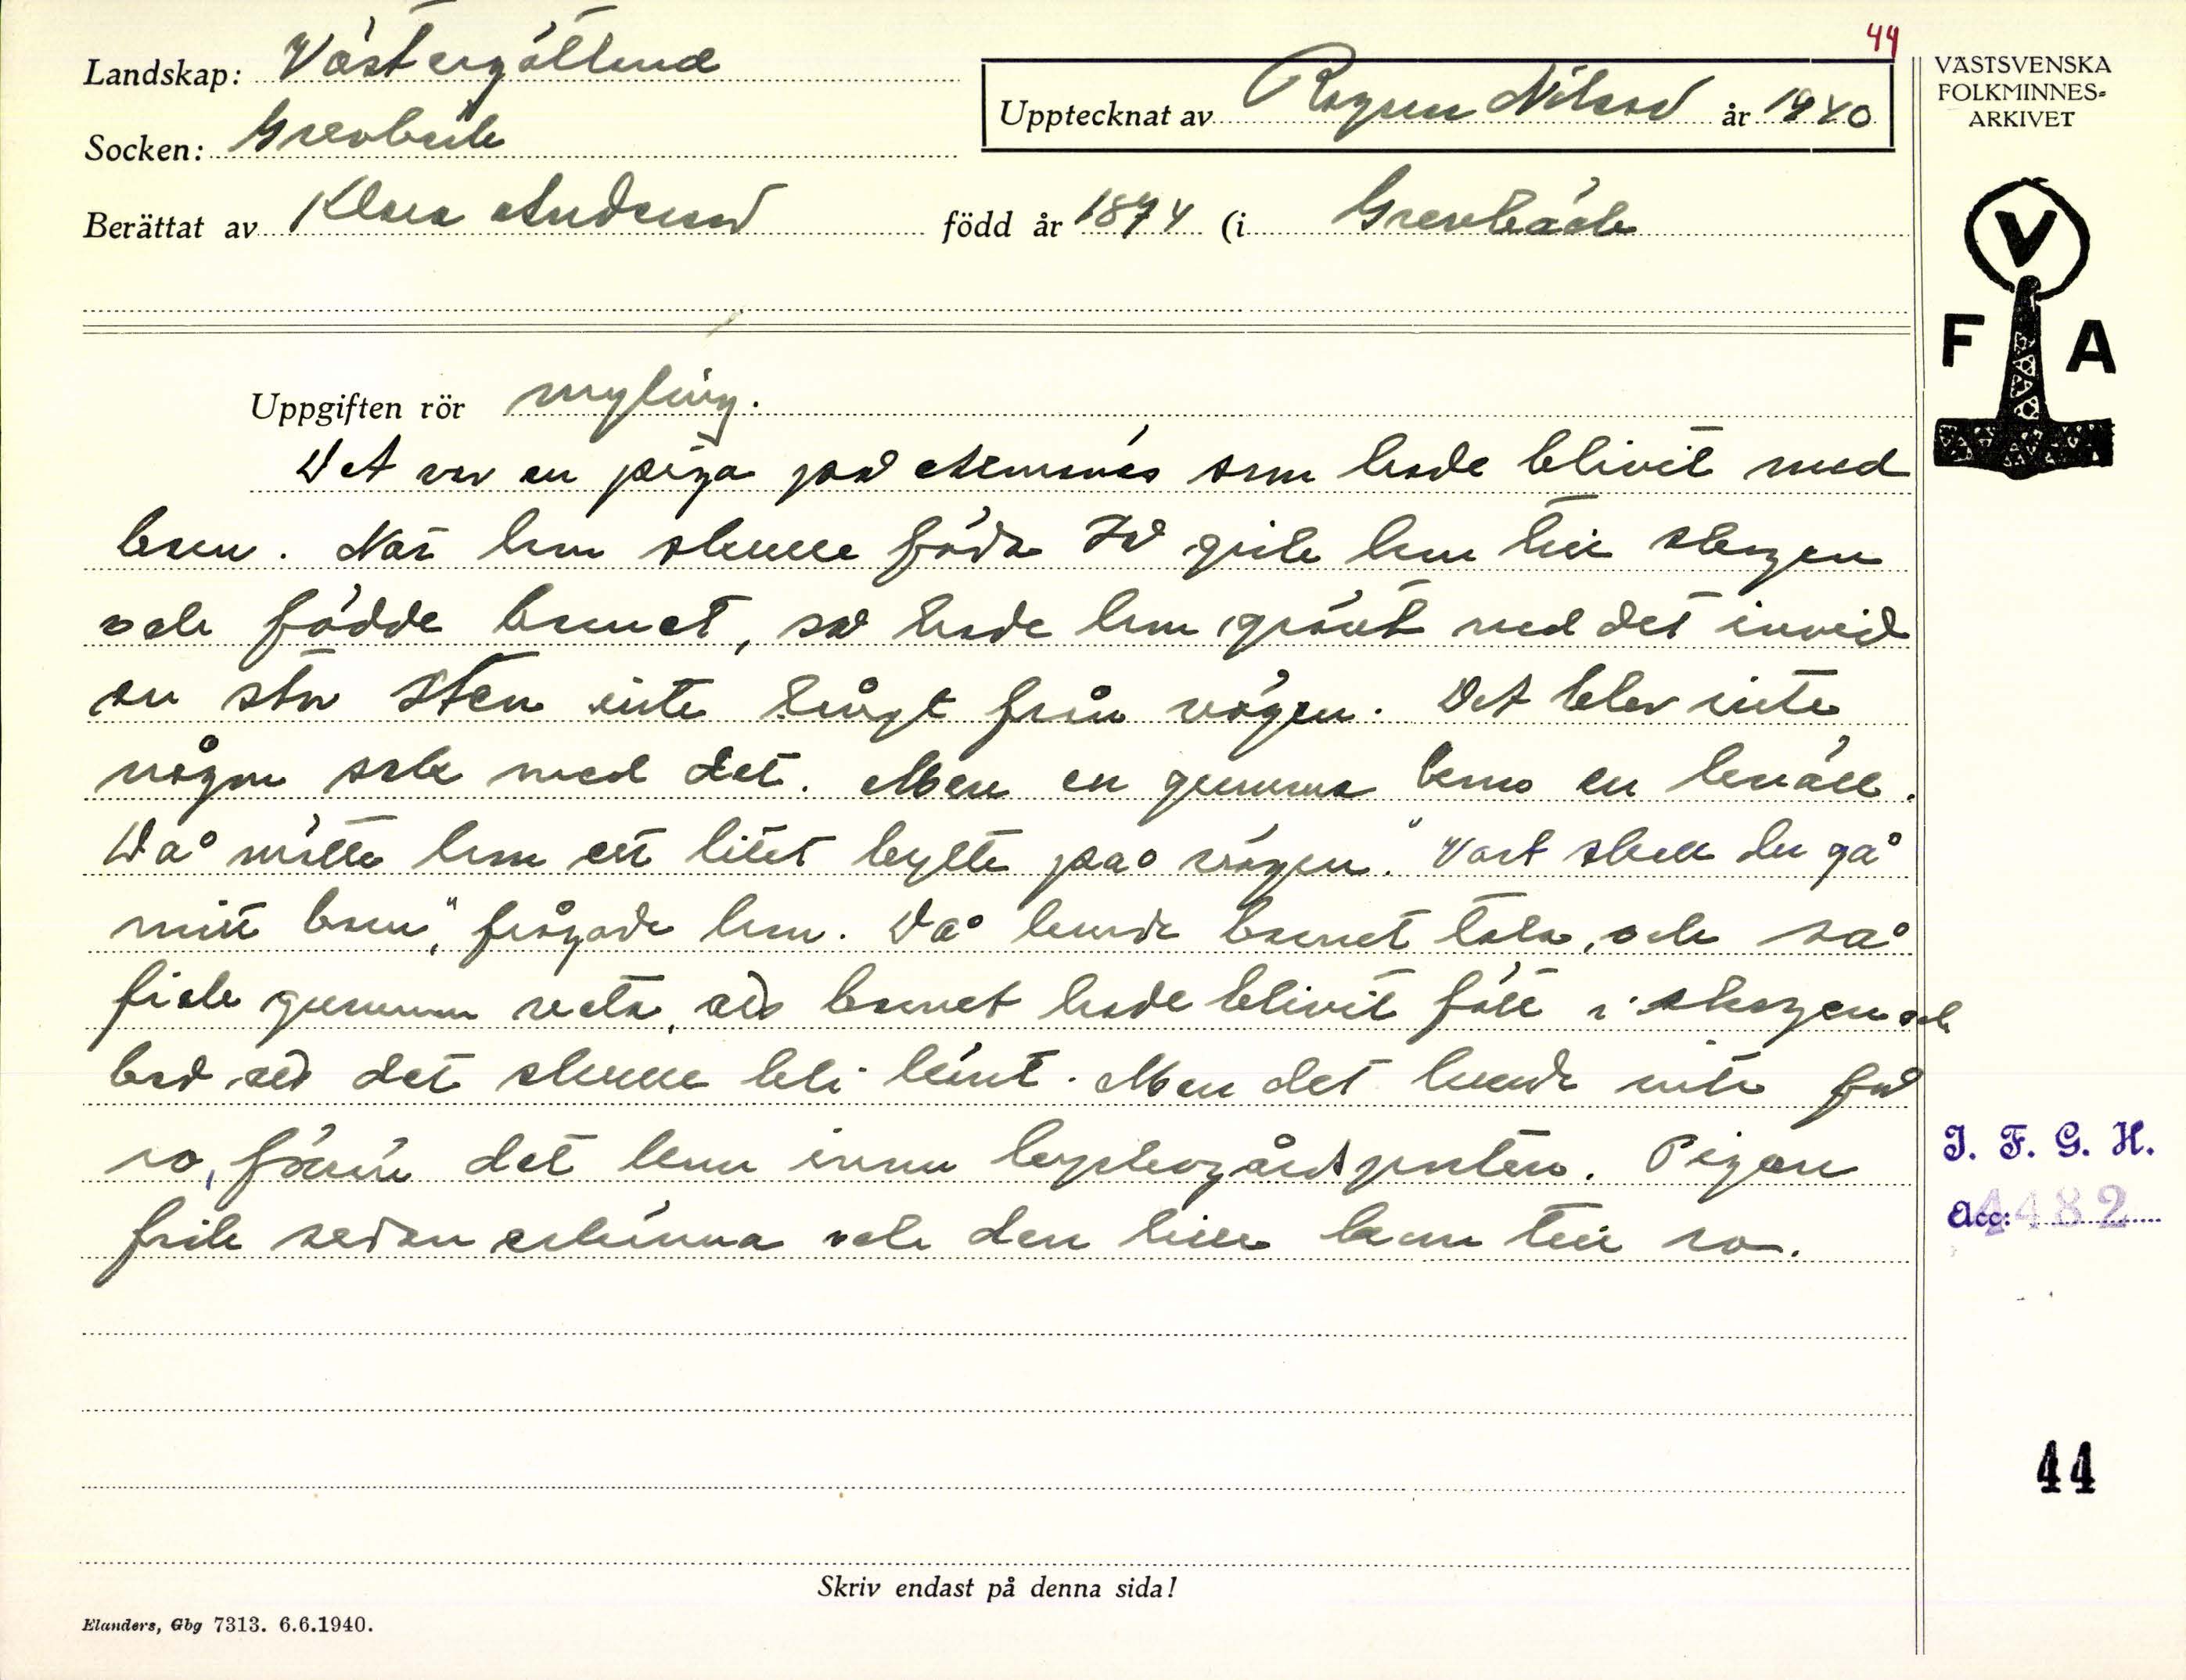 44
Landskap: Västergötland
Upptecknat av Ragnar Nilsson år 1940
Socken: Grevbäck
Berättat av Klara Andersson född år 1874 (i Grevbäck
VÄSTSVENSKA
FOLKMINNES-
ARKIVET
V
F A
Uppgiften rör myling.
Det var en piga på som hade blivit med
barn. När hon skulle föda så gick hon till skogen
och födde barnet, så hade hon grävt ned det invid
en stor sten inte långt från vägen. Det blev inte
någon sak med det. Men en gumma kom en kväll.
Då mötte hon ett litet bytte på vägen. "Vart skall du gå
mitt barn", frågade hon. Då kunde barnet tala, och så
fick gumman veta, att barnet hade blivit fött i skogen och
bad att det skulle bli känt. Men det kunde inte få
ro, förrän det kom inom kyrkogårdsporten. Pigan
fick sedan erkänna och den lille kom till ro.
I. F. G. H.
Acc: 4482
44
Skriv endast på denna sida!
Elanders, Gbg 7313. 6.6.1940.